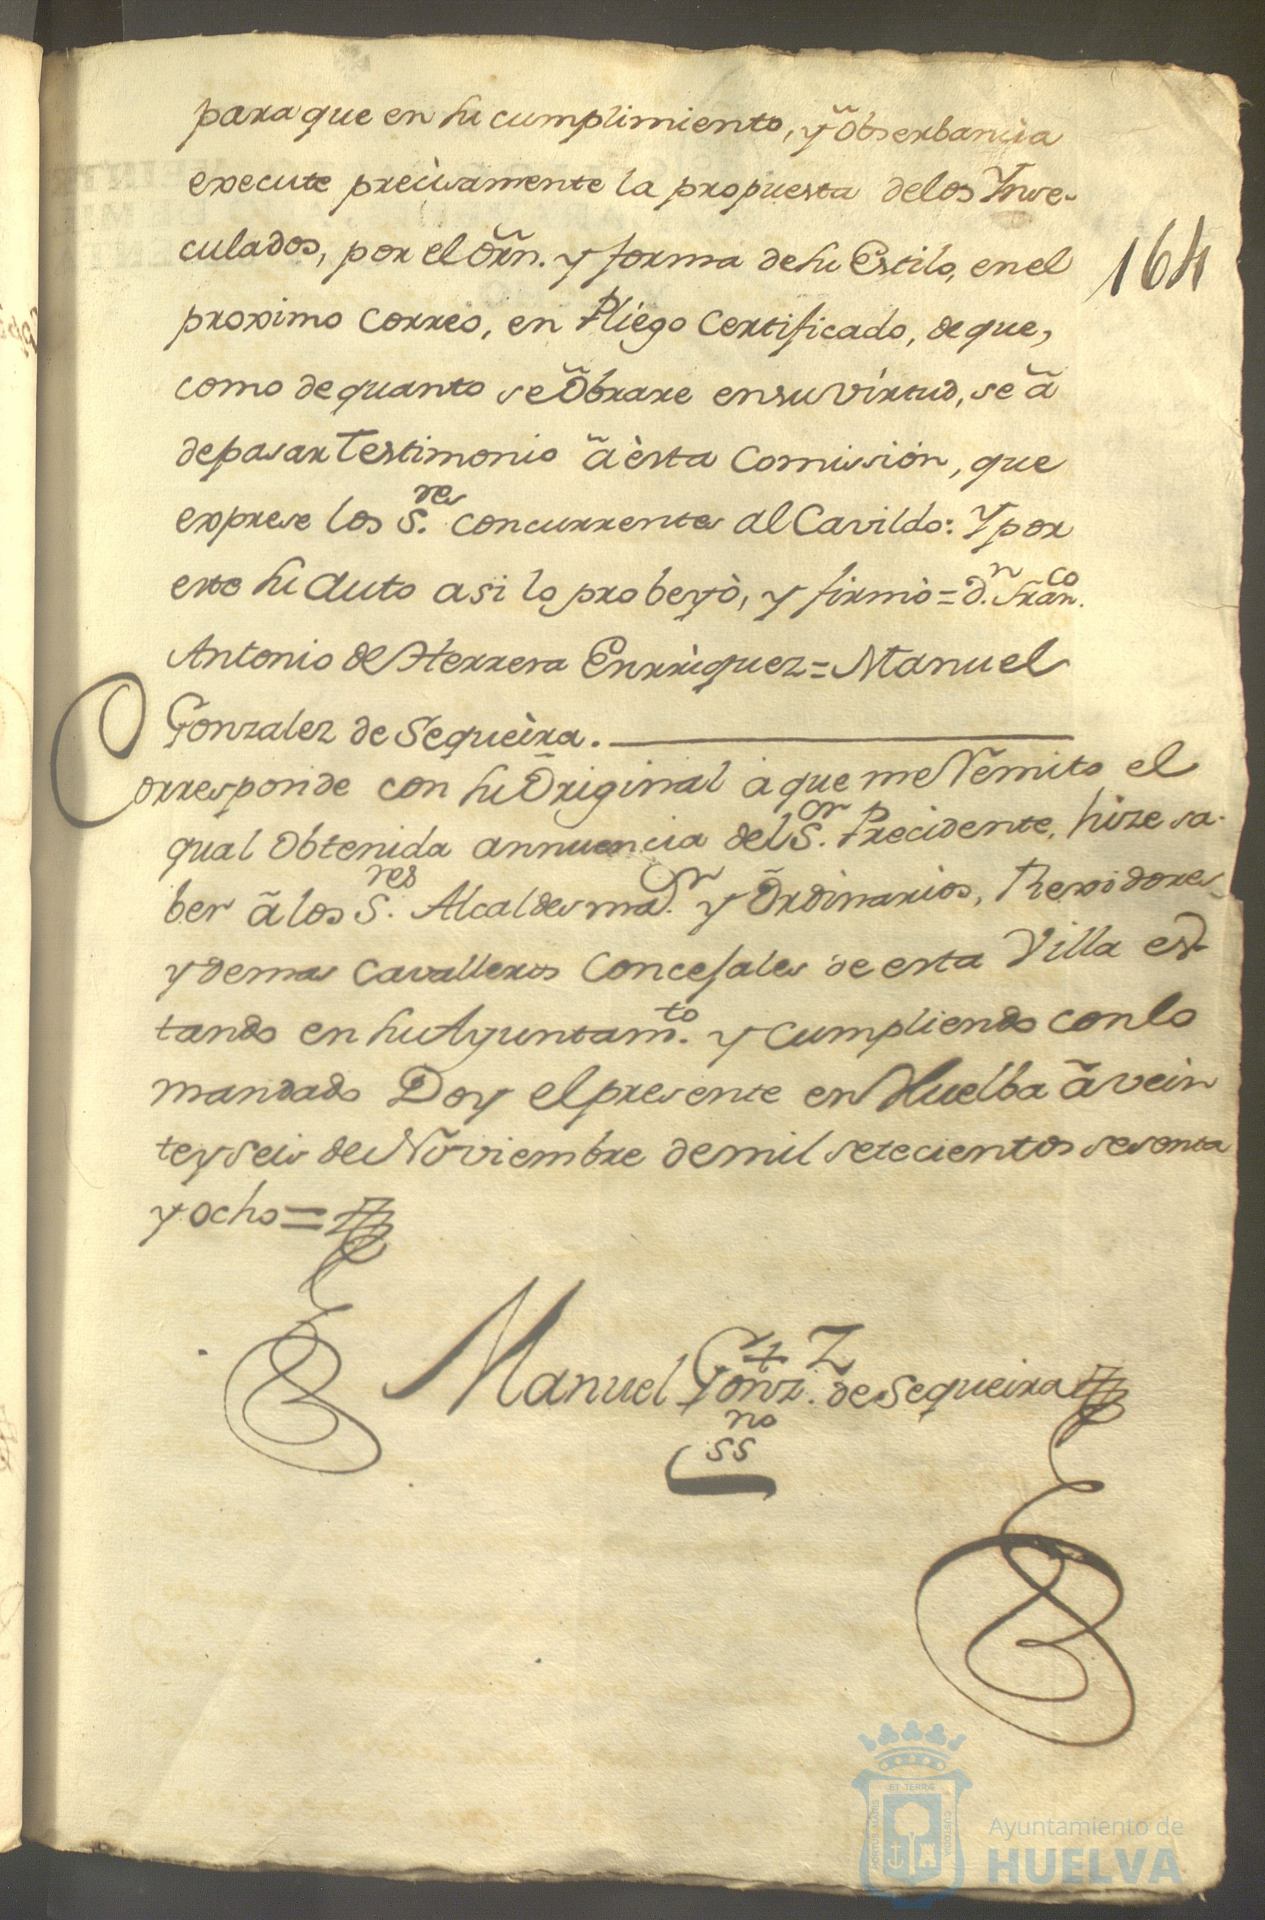 para que en su cumplimiento, y õbserbancia
execute precisamente la propuesta delos Ynse-
culados, por el õrn. y forma de su Estilo, en el
proximo Correo, en Pliego Certificado, de que,
como de quanto se õbrare ensu virtud, se ã
depasar Testimonio ã èsta Comission, que
exprese los S.res concurrentes al Cavildo: Y por
este su Auto asi lo probeyò, y firmò = D.n Fran.co
Antonio de Herrera Enrriquez = Manuel
Gonzalez de Sequèira.
Corresponde con su Õriginal à que me Remito el
qual Obtenida annuencia del S.or Precidente, hize sa-
ber ã los S.res Alcaldes ma.r y Õrdinarios, Rexidores
y demas Cavalleros Concejales de esta Villa es-
tando en su Ayuntam.to y Cumpliendo con lo
mandado Doy el presente en Huelba ã vein
te y seis de Noviembre de mil setecientos sesenta
y ocho =
Manuel Gonz.z de Sequeira
no
ss
164
ET TERRÆ
PORTUS MARIS
CUSTODIA
Ayuntamiento de
HUELVA